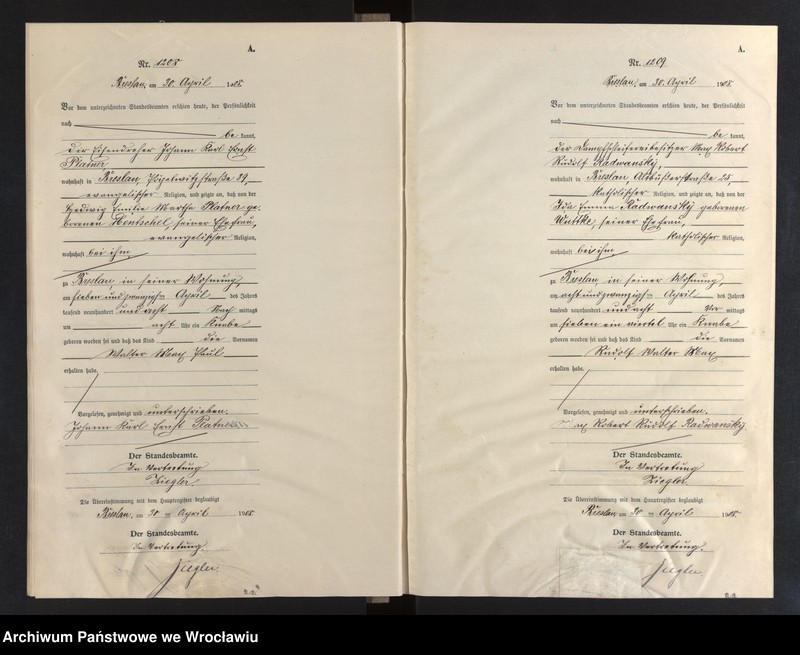 A.
Nr. 1208
Breslau, am 30. April 1908.
Vor dem unterzeichneten Standesbeamten erschien heute, der Persönlichkeit
nach
be kannt,
der Eisendreher Johann Karl Ernst
Platner
wohnhaft in Breslau, 39,
evangelischer Religion, und zeigte an, daß von der
Hedwig Emilie Martha Platner ge-
borenen Hentschel, seiner Ehefrau,
evangelischer Religion,
wohnhaft bei ihm,
zu Breslau in seiner Wohnung,
am sieben und zwanzigsten April des Jahres
tausend neunhundert und acht Nach mittags
um acht Uhr ein Knabe
geboren worden sei und daß das Kind die Vornamen
Walter Max Paul
erhalten habe.
Vorgelesen, genehmigt und unterschrieben.
Johann Karl Ernst Platner
Der Standesbeamte.
In Vertretung
Ziegler.
Die Übereinstimmung mit dem Hauptregister beglaubigt
Breslau, am 30 = April 1908.
Der Standesbeamte.
In Vertretung.
Ziegler.
A.
Nr. 1209
Breslau, am 30. April 1908.
Vor dem unterzeichneten Standesbeamten erschien heute, der Persönlichkeit
nach
be kannt,
der Dampfschleifereibesitzer Max Robert
Rudolf Radwansky,
wohnhaft in Breslau, 28,
katholischer Religion, und zeigte an, daß von der
Ida Emma Radwansky geborenen
Wuttke, seiner Ehefrau,
katholischer Religion,
wohnhaft bei ihm,
zu Breslau in seiner Wohnung,
am acht und zwanzigsten April des Jahres
tausend neunhundert und acht Vor mittags
um sieben ein viertel Uhr ein Knabe
geboren worden sei und daß das Kind die Vornamen
Rudolf Walter Max
erhalten habe.
Vorgelesen, genehmigt und unterschrieben.
Max Robert Rudolf Radwansky
Der Standesbeamte.
In Vertretung
Ziegler.
Die Übereinstimmung mit dem Hauptregister beglaubigt
Breslau, am 30 = April 1908.
Der Standesbeamte.
In Vertretung.
Ziegler.
Archiwum Państwowe we Wrocławiu